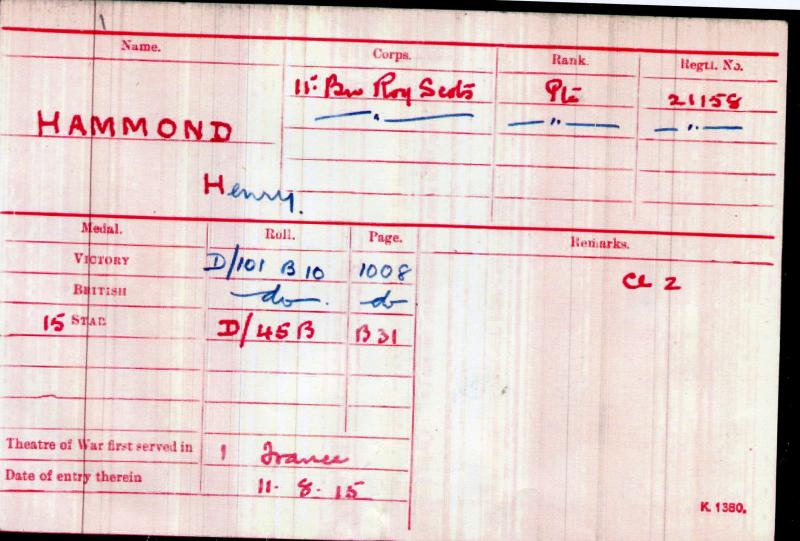 Name. Corps. Rank. Regtl. No.
11: Bn Roy Scots Pte 21158
HAMMOND " " "
Henry.
Medal. Roll. Page. Remarks.
VICTORY D/101 B 10 1008 Cl Z
BRITISH do. do
15 STAR D/45 B B31
Theatre of War first served in 1 France
Date of entry therein 11-8-15
K. 1380.